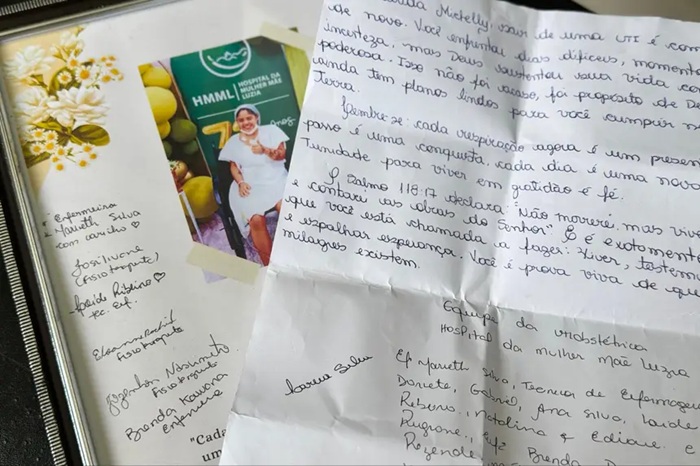 HMML
HOSPITAL DA
MULHER MÃE
LUZIA
anos
Enfermeira
Marieth Silva
com carinho
Josilvane
(Fisioterapeuta)
Laide Ribeiro
tec. Enf.
Fisioterapeuta
Nascimento
Fisioterapeuta
Brenda
Enfermeira
"Cada
um
Mickelly, sair de uma UTI é com
de novo. Você enfrentou dias difíceis, momento
incerteza, mas Deus sustentou sua vida com
poderosa. Isso não foi acaso, foi propósito de D
ainda tem planos lindos para você cumprir n
Terra.
Lembre-se: cada respiração agora é um presen
passo é uma conquista, cada dia é uma nova
tunidade para viver em gratidão e fé.
O Salmo 118:17 declara: "Não morrerei, mas vive
e contarei as obras do Senhor." E é exatamente
que você está chamada a fazer: Viver, testem
e espalhar esperança. Você é prova viva de que
milagres existem.
Equipe da
Hospital da mulher Mãe Luzia
Silva
Enf Marieth Silva, Tecnica de Enfermagem
Daniela, Gabriel, Ana Silva, Laide
Ribeiro, Natalina e Edilane e
Enfª Brenda
Rezende